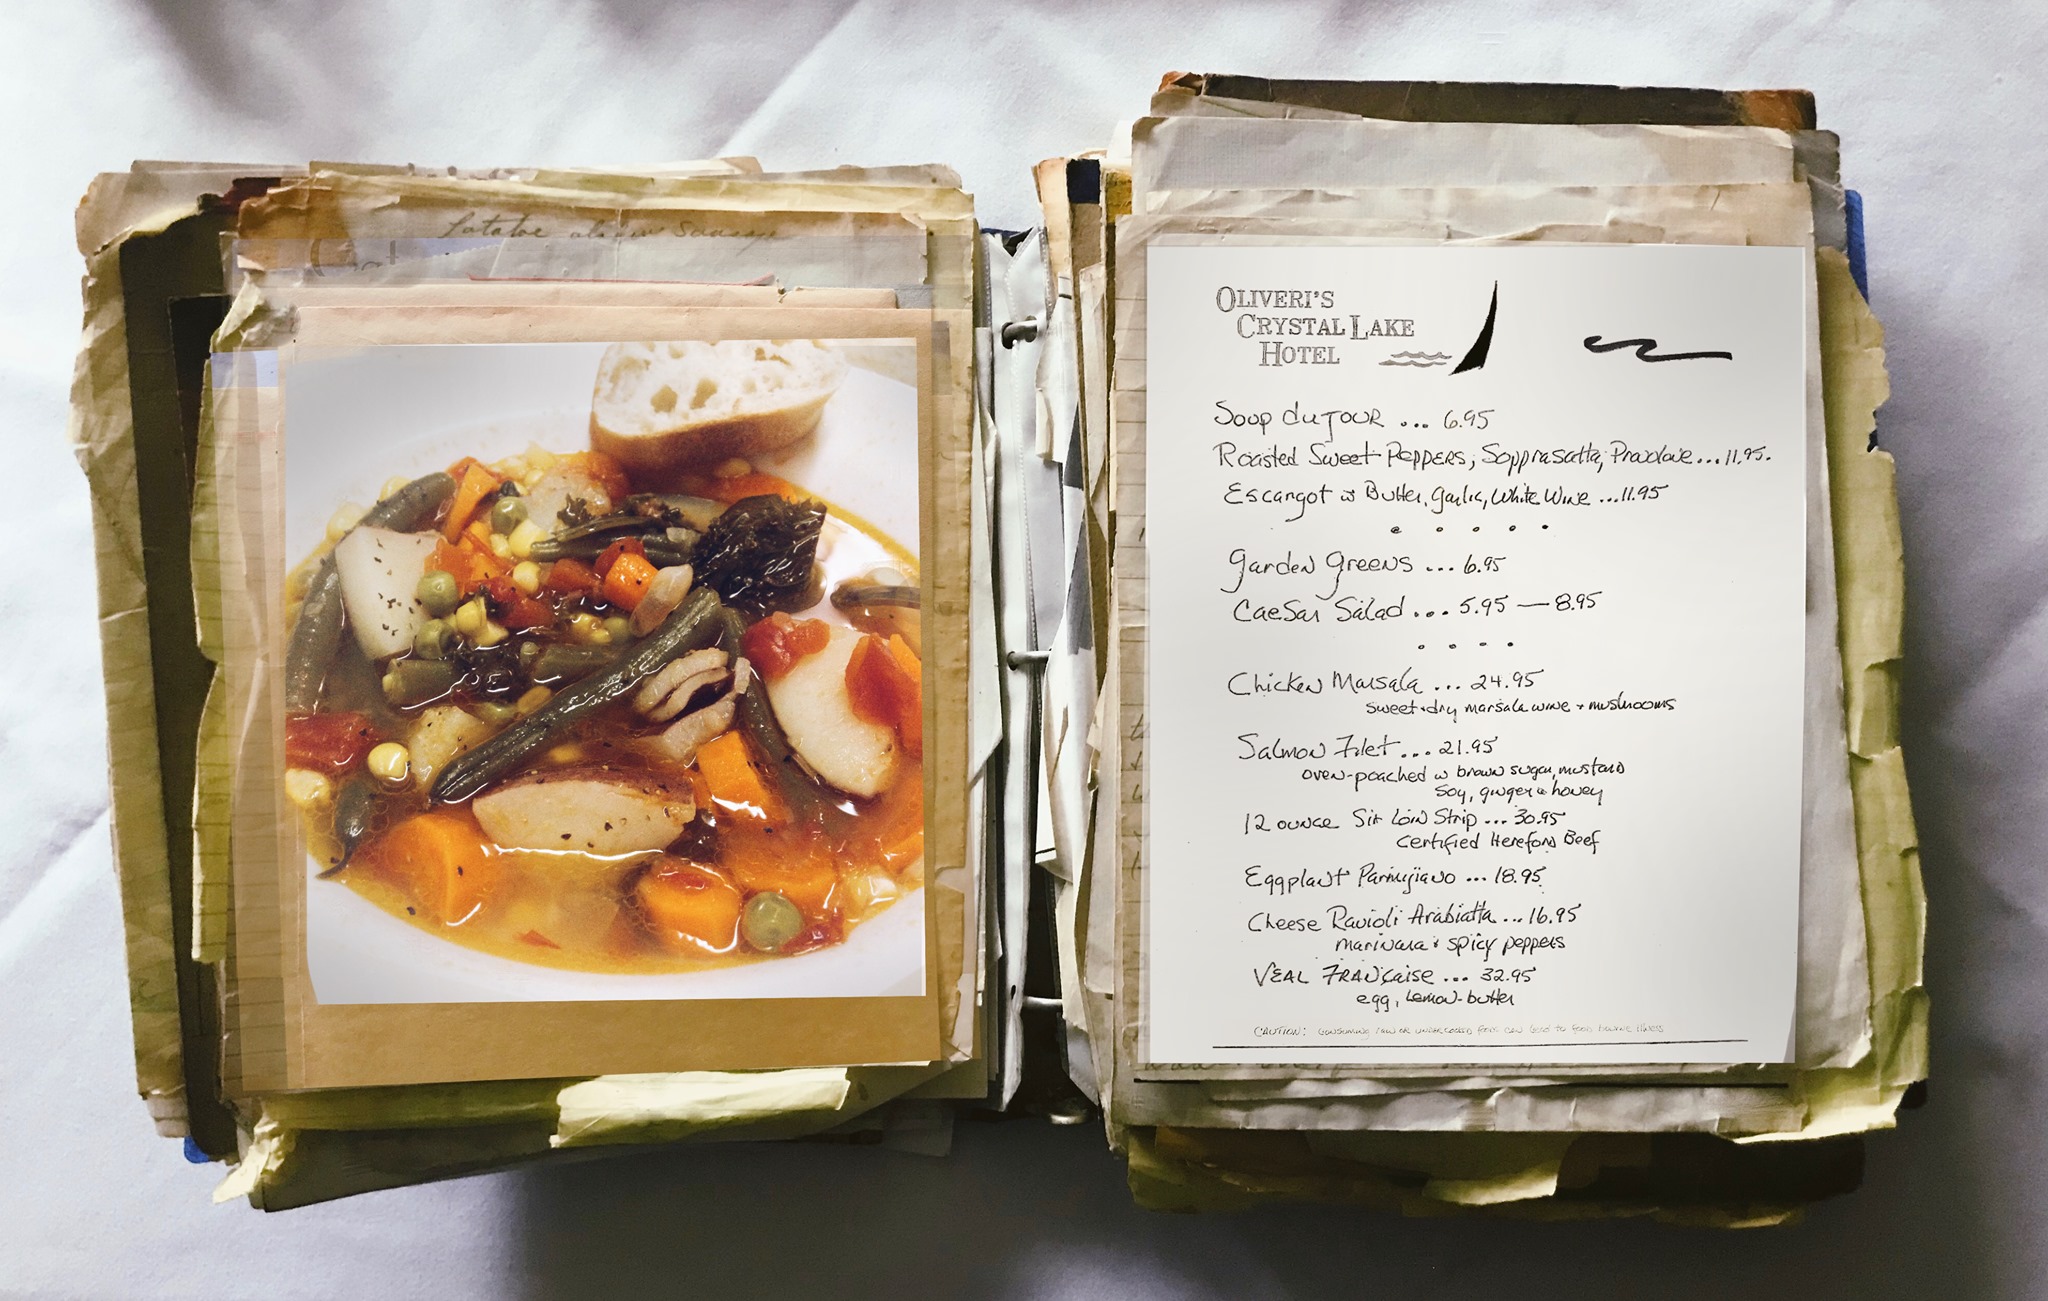 Sausage
OLIVERI'S
CRYSTAL LAKE
HOTEL
Soup du Jour ... 6.95
Roasted Sweet Peppers, Sopprasatta, Provolone... 11.95.
Escargot w Butter, garlic, White Wine ... 11.95
Garden Greens ... 6.95
Caesar Salad ... 5.95 — 8.95
Chicken Marsala ... 24.95
sweet + dry marsala wine + mushrooms
Salmon Filet ... 21.95
oven-poached w brown sugar, mustard
soy, ginger & honey
12 ounce Sir Loin Strip ... 30.95
Certified Hereford Beef
Eggplant Parmijiano ... 18.95
Cheese Ravioli Arabiatta ... 16.95
marinara + spicy peppers
VEAL FRANÇaise ... 32.95
egg, lemon-butter
CAUTION: consuming raw or undercooked foods can lead to food bourne illness